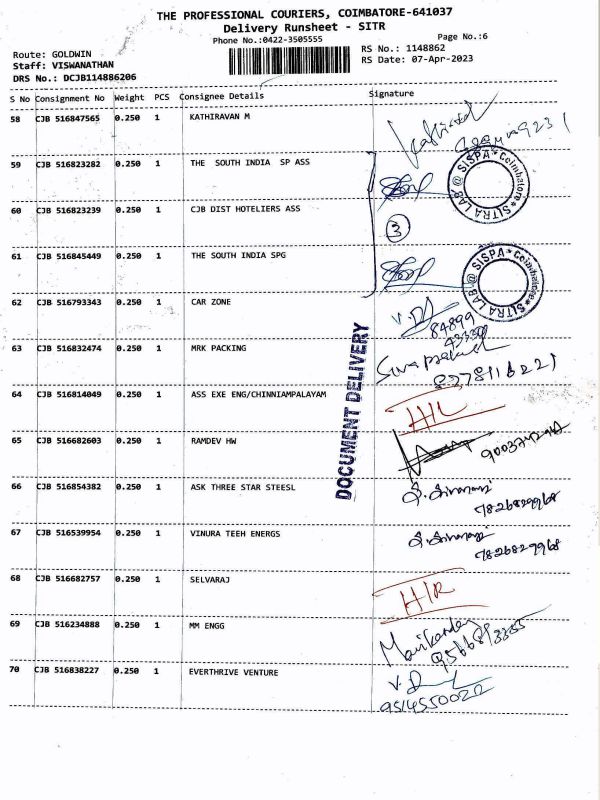 THE PROFESSIONAL COURIERS, COIMBATORE-641037
Delivery Runsheet - SITR
Phone No.:0422-3505555
Page No.:6
Route: GOLDWIN
RS No.: 1148862
Staff: VISWANATHAN
RS Date: 07-Apr-2023
DRS No.: DCJB114886206
S No Consignment No Weight PCS Consignee Details Signature
58 CJB 516847565 0.250 1 KATHIRAVAN M
59 CJB 516823282 0.250 1 THE SOUTH INDIA SP ASS
SITRA LAB @ SISPA * Coimbatore *
60 CJB 516823239 0.250 1 CJB DIST HOTELIERS ASS
3
61 CJB 516845449 0.250 1 THE SOUTH INDIA SPG
SITRA LAB @ SISPA * Coimbatore *
62 CJB 516793343 0.250 1 CAR ZONE
84899
DOCUMENT DELIVERY
63 CJB 516832474 0.250 1 MRK PACKING
Siva prakash
64 CJB 516814049 0.250 1 ASS EXE ENG/CHINNIAMPALAYAM
65 CJB 516682603 0.250 1 RAMDEV HW
66 CJB 516854382 0.250 1 ASK THREE STAR STEESL
7826829968
67 CJB 516539954 0.250 1 VINURA TEEH ENERGS
7826829968
68 CJB 516682757 0.250 1 SELVARAJ
69 CJB 516234888 0.250 1 MM ENGG
70 CJB 516838227 0.250 1 EVERTHRIVE VENTURE
9514550022